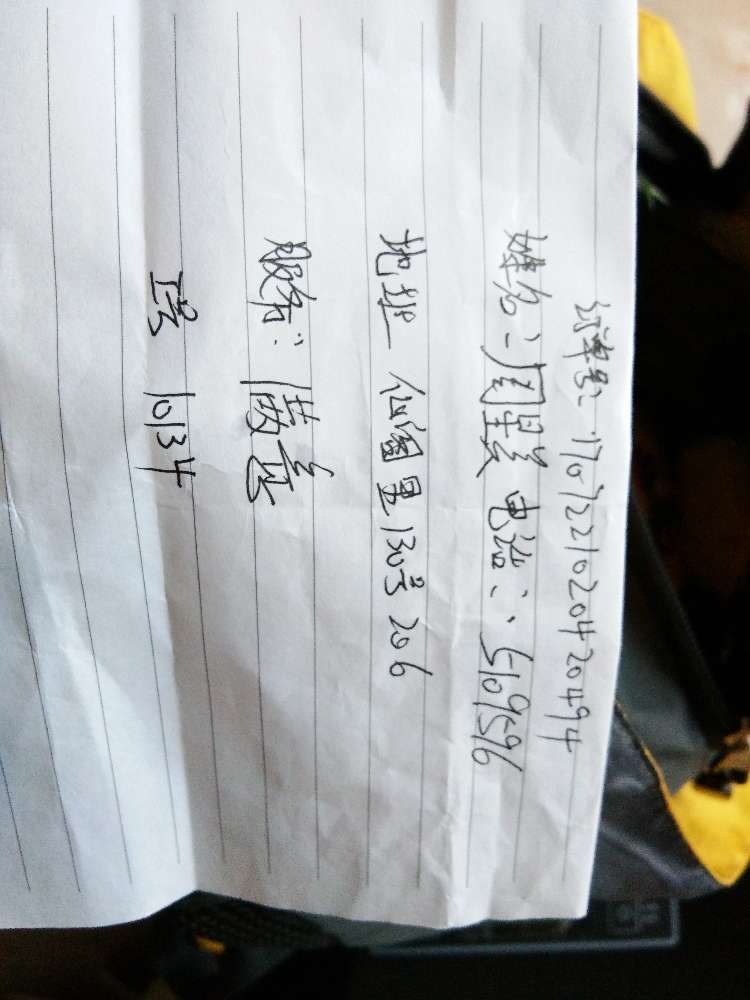 订单号: 1707221020420494
姓名: 周星 电话: 5109596
地址 仙图里130号206
服务: 满意
工号 10134